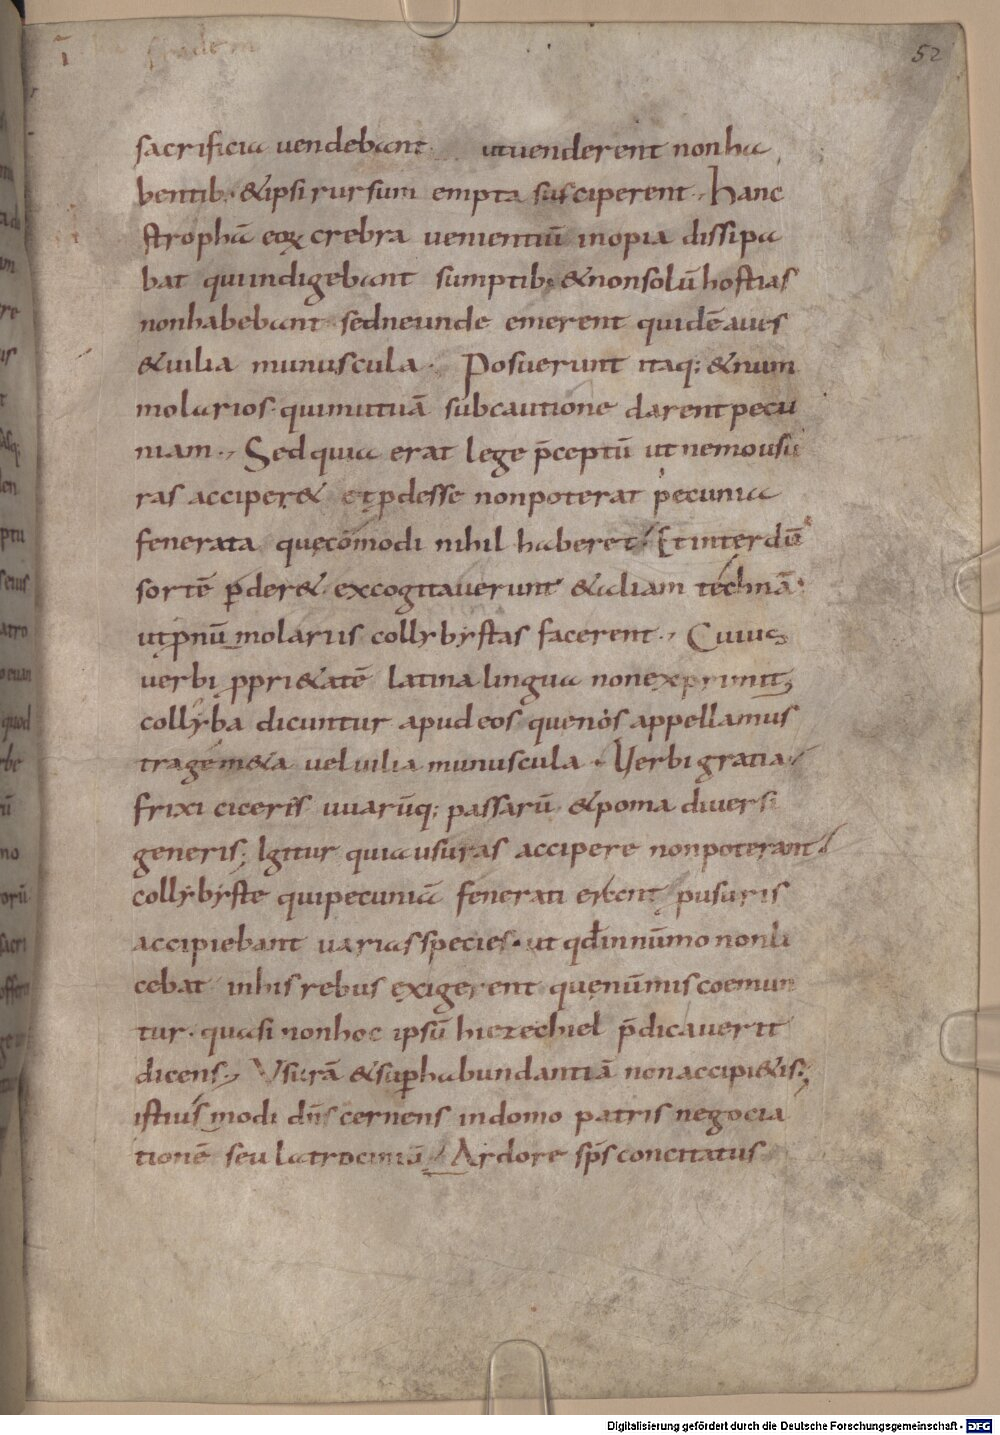 52
sacrificia uendebant utuenderent nonha
bentib; &ipsi rursum empta susciperent. Hanc
strophā eoꝝ crebra uenientiū inopia dissipa
bat quiindigebant sumptib; &nonsolū hostias
nonhabebant sedneunde emerent quidē aues
&uilia munuscula. Posuerunt itaq; &num
molarios quimutuā subcautione darentpecu
niam. Sedquia erat lege p̄ceptū ut nemousu
ras acciper& et ꝓdesse nonpoterat pecunia
fenerata quęcōmodi nihil haberet. Et interdū
sortē ꝑder& excogitauerunt &aliam technā.
utpnūmolariis collybystas facerent. Cuius
uerbi ꝓpri&atē latina lingua nonexprimit;
collyba dicuntur apudeos quenos appellamus
tragem&a uel uilia munuscula. Verbi gratia
frixi ciceris uuarūq; passarū &poma diuersi
generis; Igitur quiausuras accipere nonpoterant
collybyste quipecuniā fenerati erant pusuris
accipiebant uariasspecies. ut qđinnūmo nonli
cebat inhis rebus exigerent quenūmis coemun
tur. quasi nonhoc ipsū hiezechiel p̄dicauerit
dicens; Vsurā &suꝑhabundantiā nonaccipi&is;
istiusmodi dn̄s cernens indomo patris negocia
tionē seu latrociniū. Ardore sp̄s concitatus
Digitalisierung gefördert durch die Deutsche Forschungsgemeinschaft - DFG